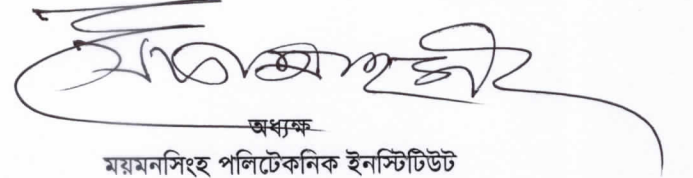 অধ্যক্ষ
ময়মনসিংহ পলিটেকনিক ইনস্টিটিউট